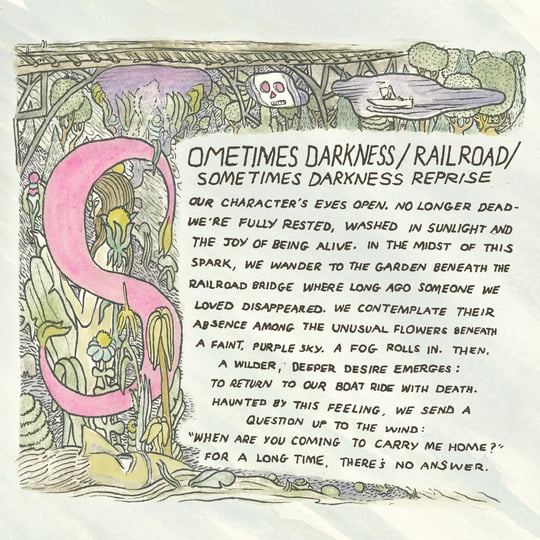 SOMETIMES DARKNESS/RAILROAD/
SOMETIMES DARKNESS REPRISE
OUR CHARACTER'S EYES OPEN. NO LONGER DEAD-
WE'RE FULLY RESTED, WASHED IN SUNLIGHT AND
THE JOY OF BEING ALIVE. IN THE MIDST OF THIS
SPARK, WE WANDER TO THE GARDEN BENEATH THE
RAILROAD BRIDGE WHERE LONG AGO SOMEONE WE
LOVED DISAPPEARED. WE CONTEMPLATE THEIR
ABSENCE AMONG THE UNUSUAL FLOWERS BENEATH
A FAINT, PURPLE SKY. A FOG ROLLS IN. THEN,
A WILDER, DEEPER DESIRE EMERGES:
TO RETURN TO OUR BOAT RIDE WITH DEATH.
HAUNTED BY THIS FEELING, WE SEND A
QUESTION UP TO THE WIND:
"WHEN ARE YOU COMING TO CARRY ME HOME?"
FOR A LONG TIME, THERE'S NO ANSWER.